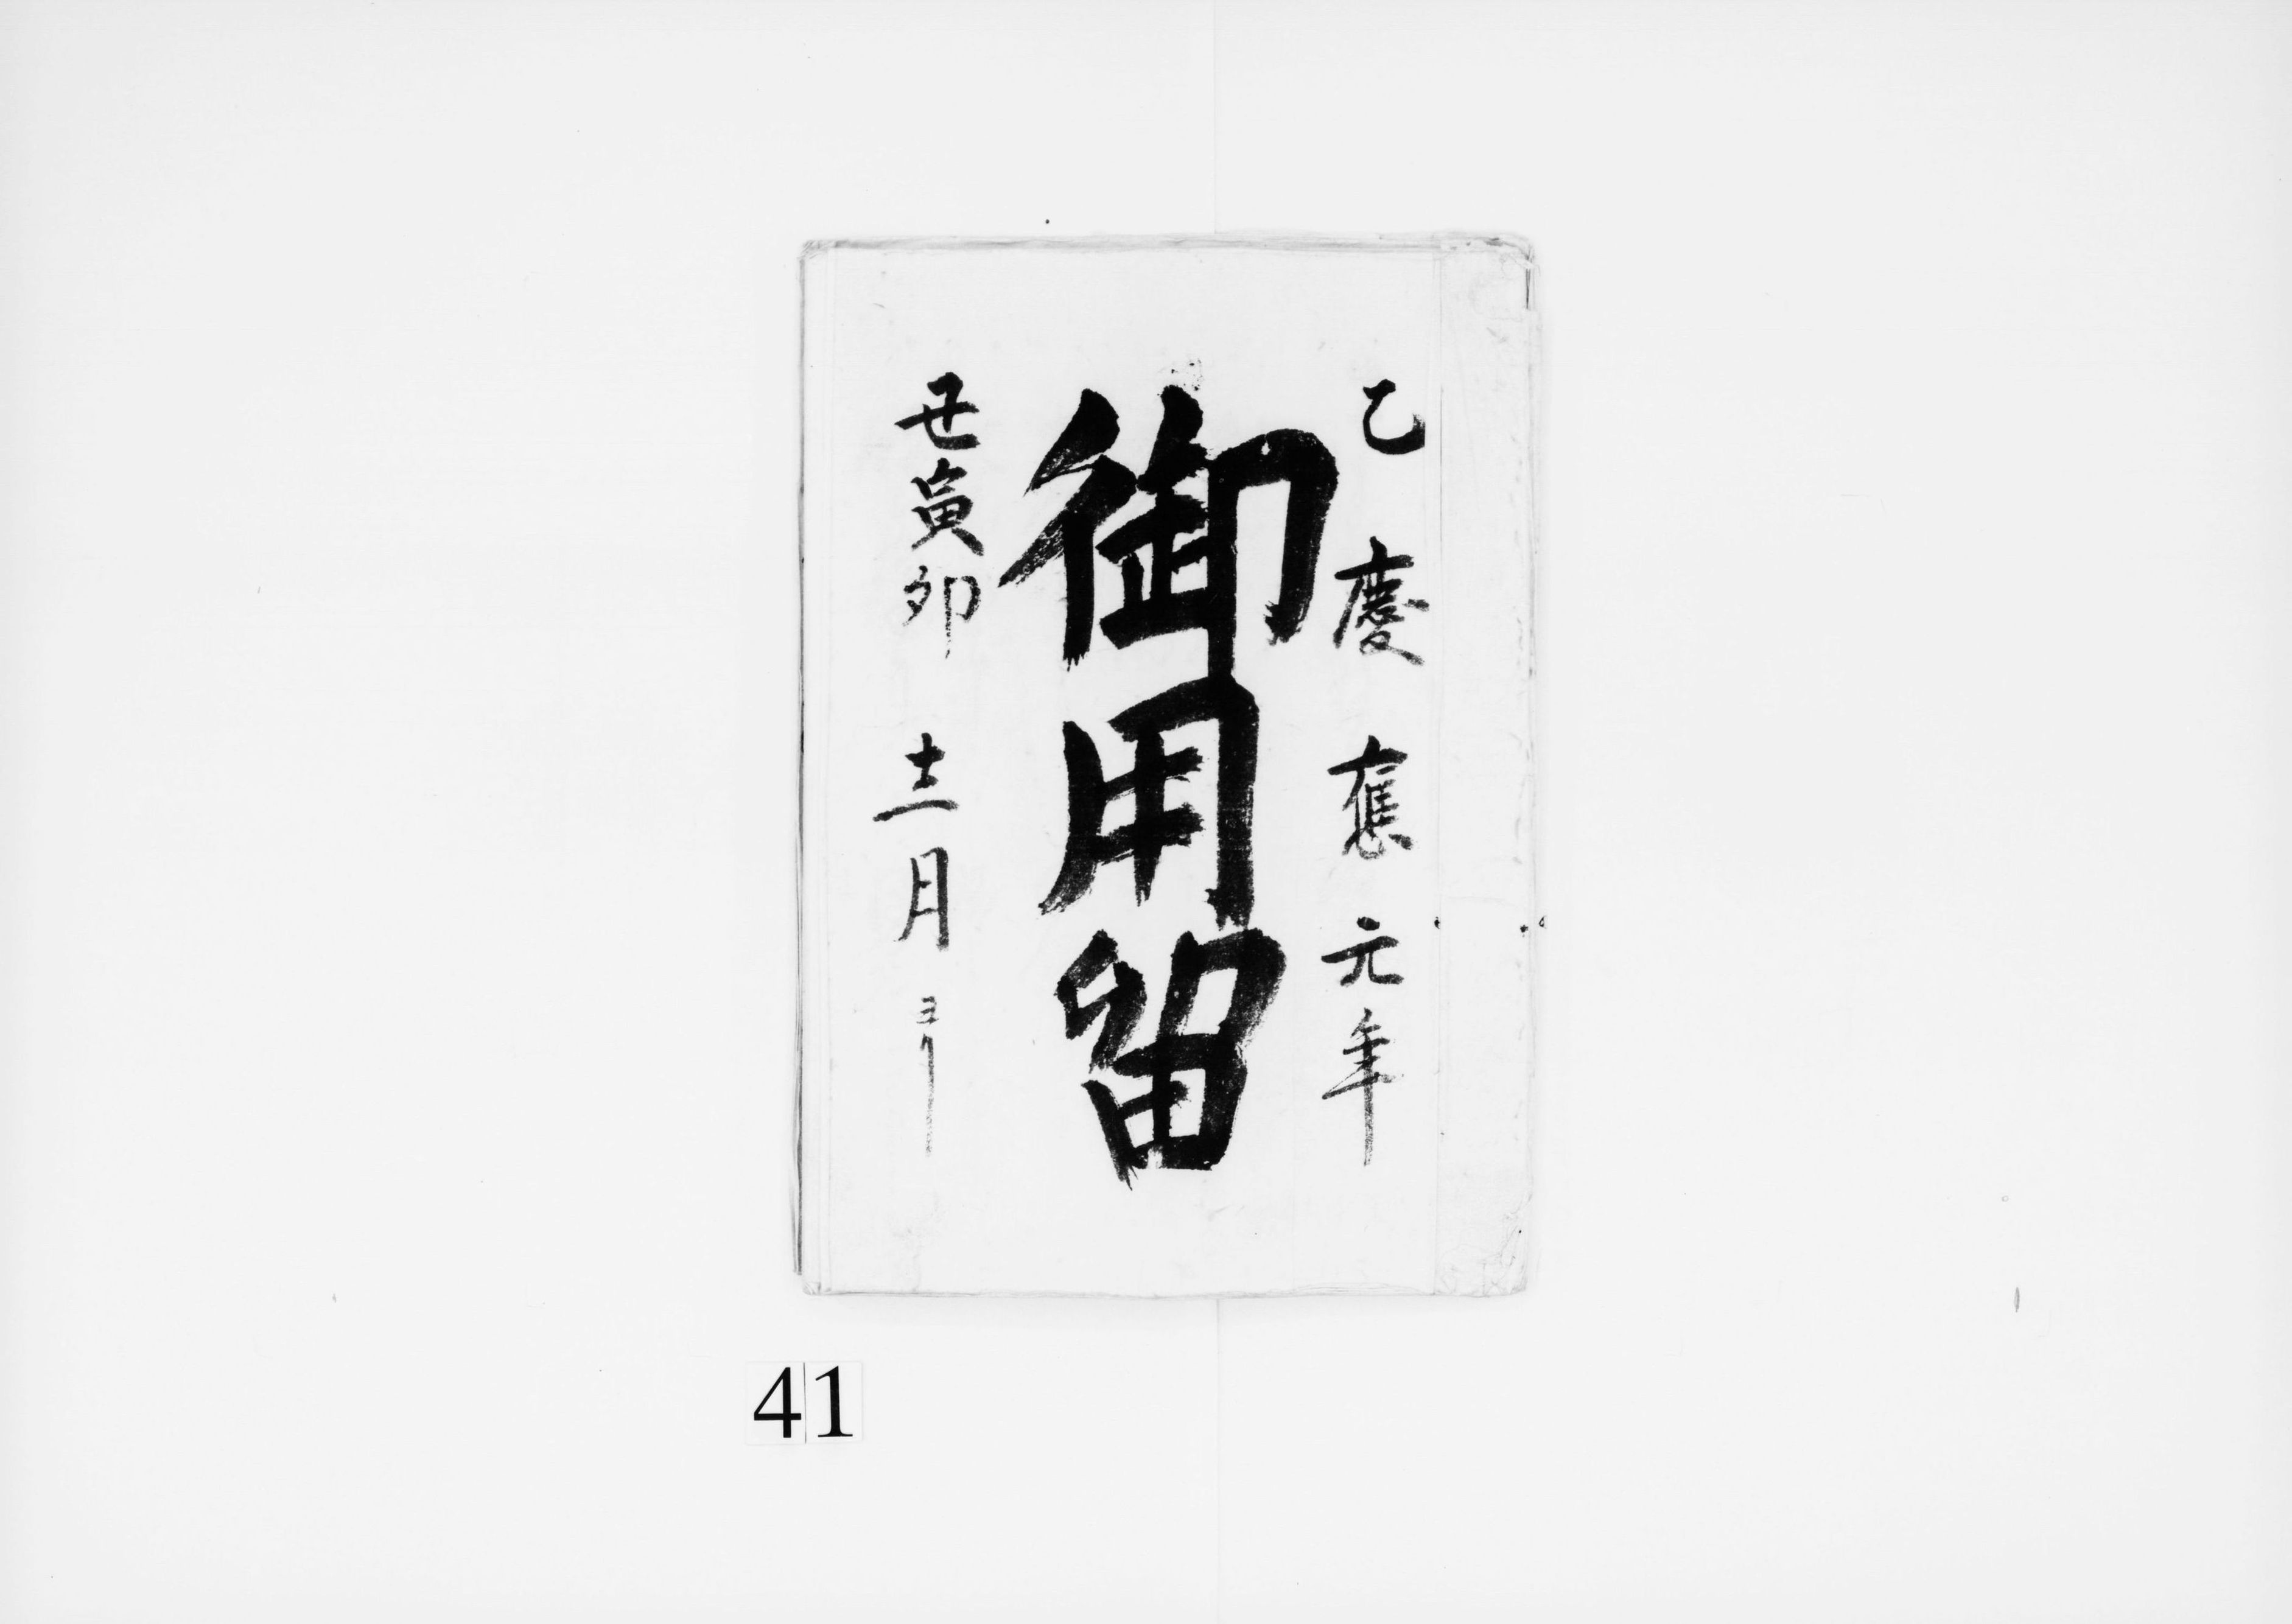 乙 慶 應 元年
御用留
丑寅卯 十二月ヨリ
41